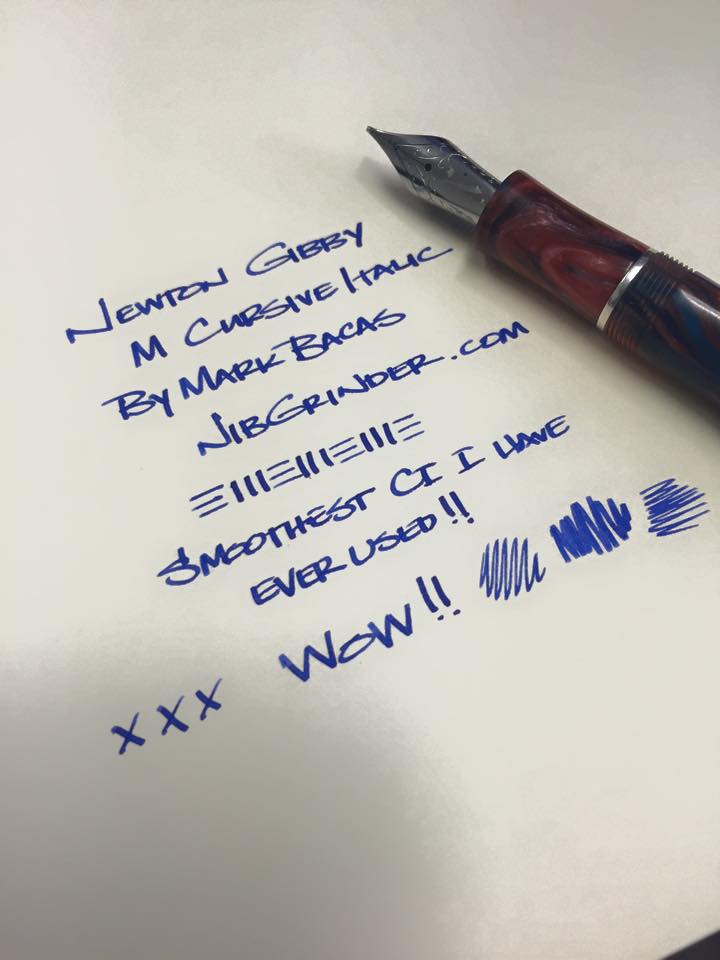 Newton Gibby
M Cursive Italic
By Mark Bacas
NibGrinder.com
Smoothest CI I have
ever used!!
Wow!!
x x x